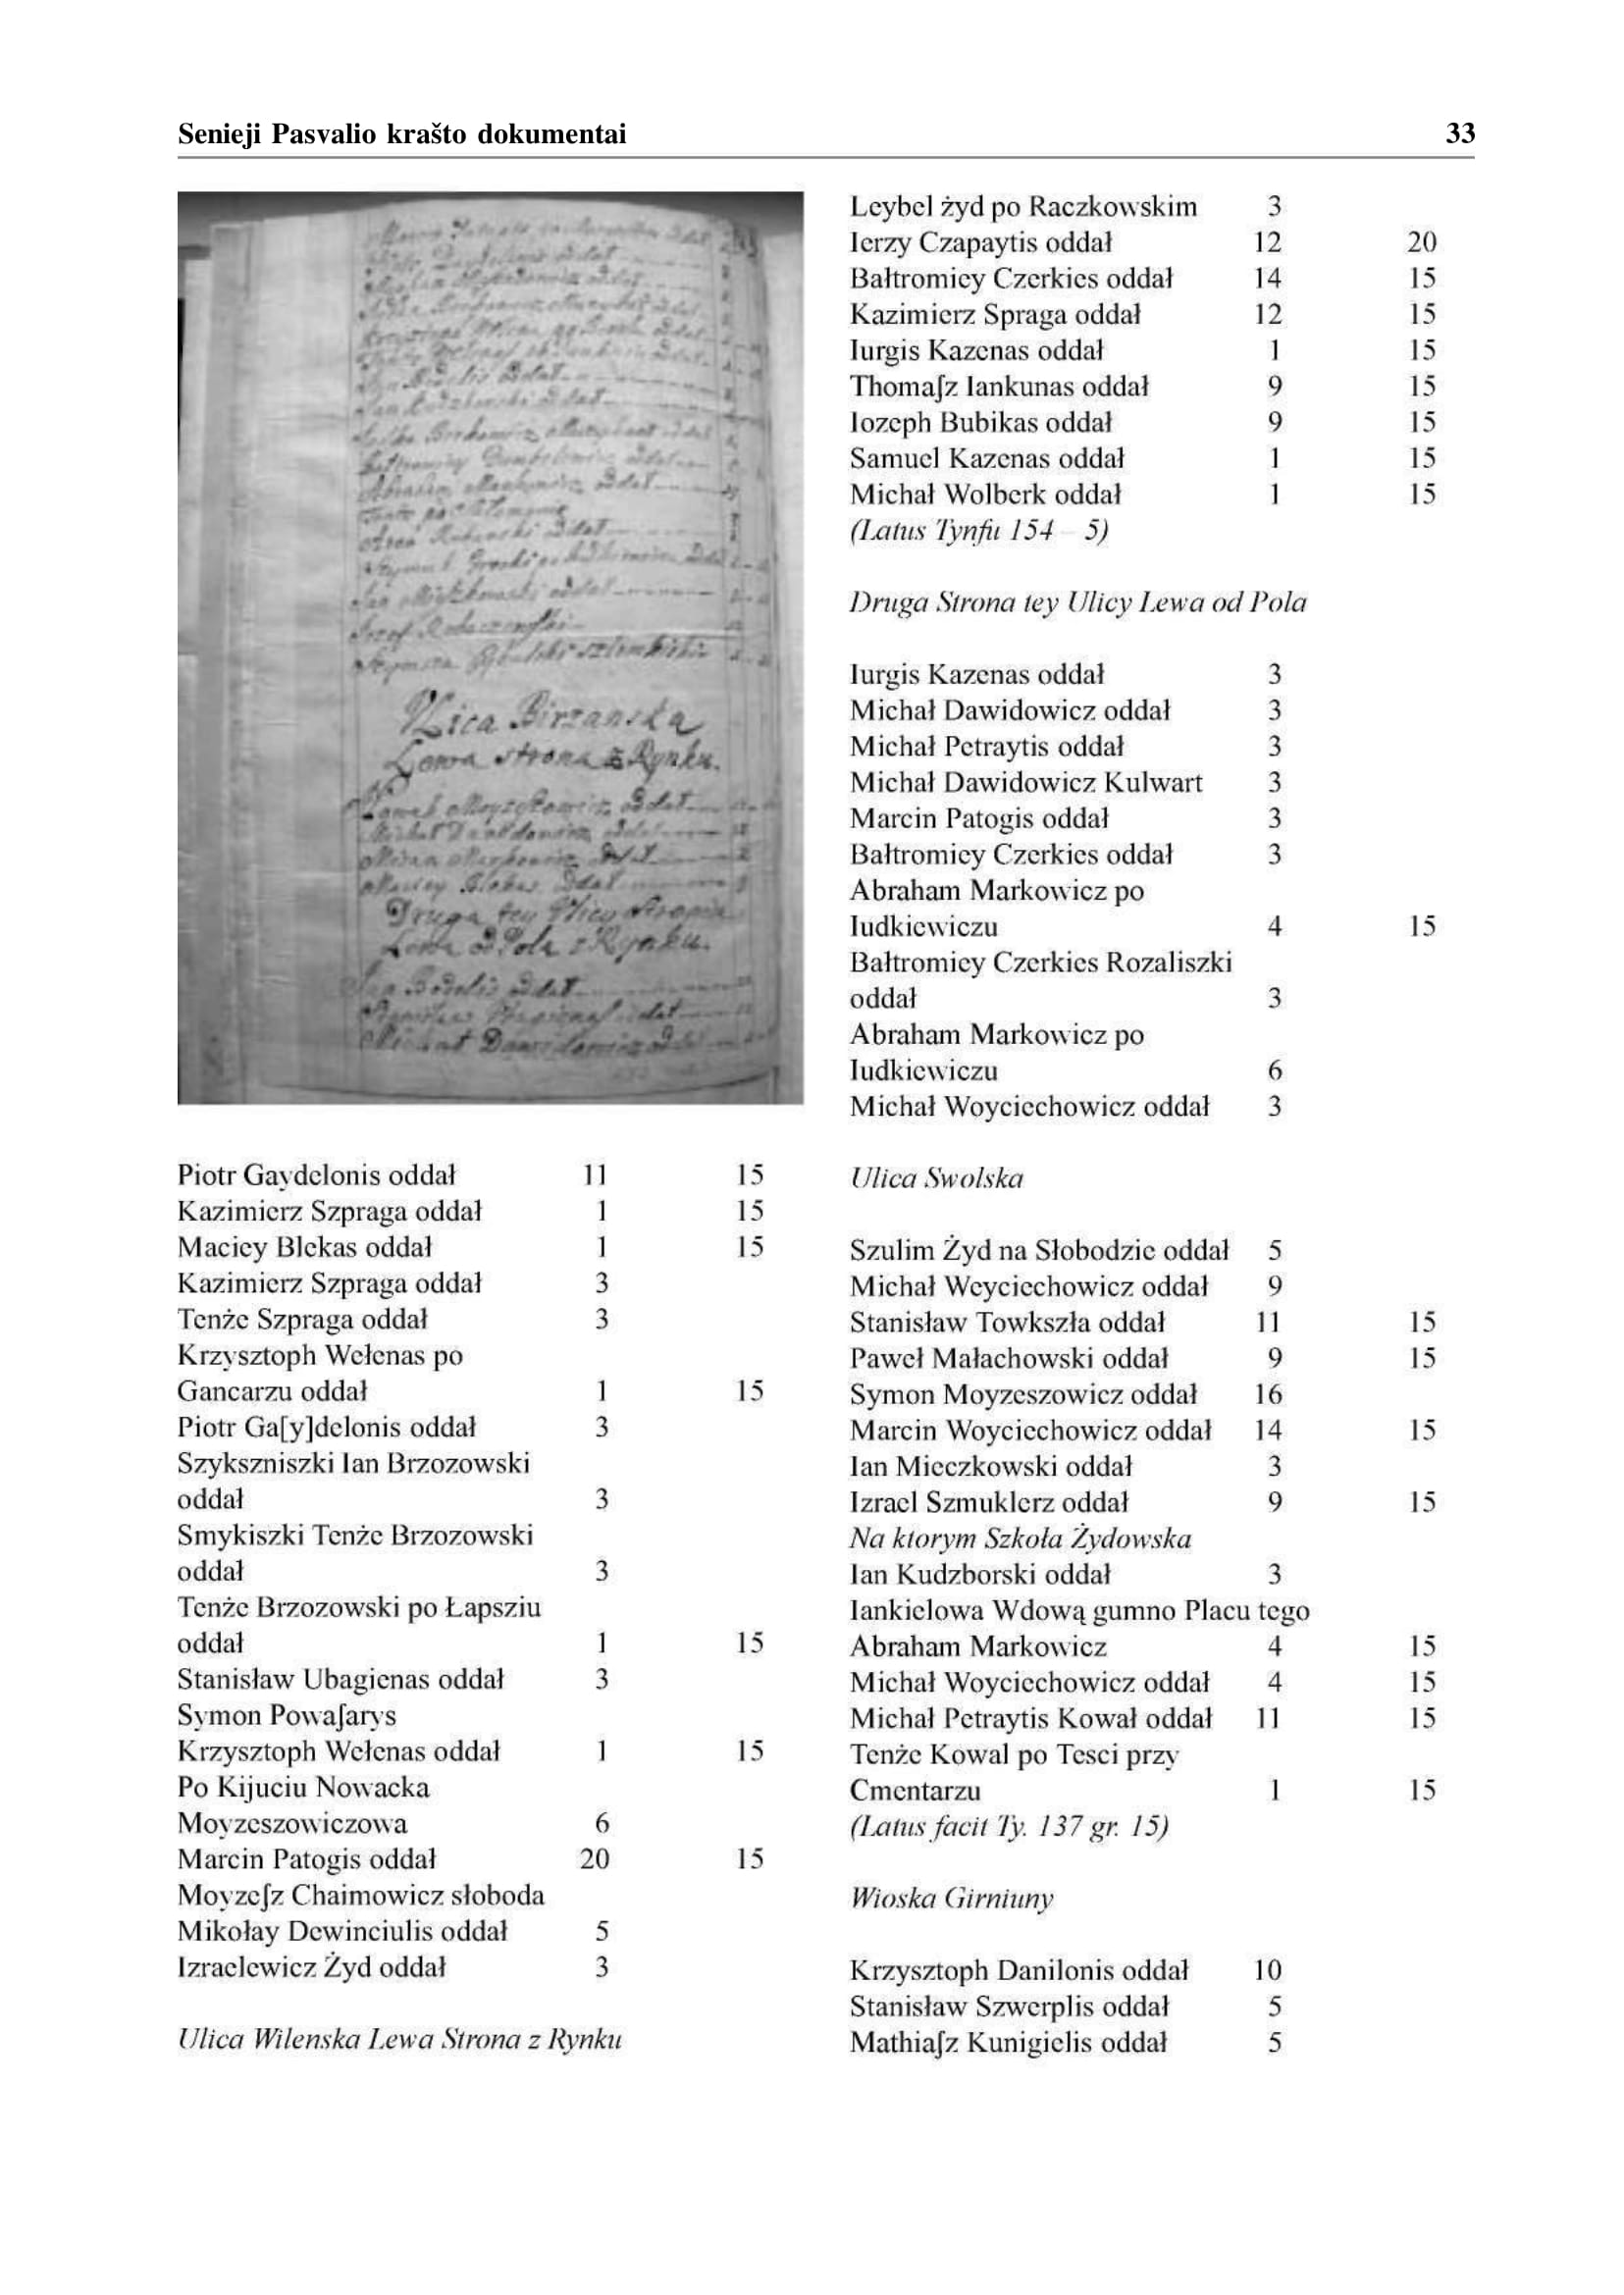 Senieji Pasvalio krašto dokumentai 33
Ulica Birzanska
Lewa strona z Rynku.
Druga tey Ulicy strona
Lewa od Pola z Rynku.
Piotr Gaydelonis oddał 11 15
Kazimierz Szpraga oddał 1 15
Maciey Blekas oddał 1 15
Kazimierz Szpraga oddał 3
Tenże Szpraga oddał 3
Krzysztoph Wełenas po
Gancarzu oddał 1 15
Piotr Ga[y]delonis oddał 3
Szykszniszki Ian Brzozowski
oddał 3
Smykiszki Tenże Brzozowski
oddał 3
Tenże Brzozowski po Łapsziu
oddał 1 15
Stanisław Ubagienas oddał 3
Symon Powaſarys
Krzysztoph Wełenas oddał 1 15
Po Kijuciu Nowacka
Moyzeszowiczowa 6
Marcin Patogis oddał 20 15
Moyzeſz Chaimowicz słoboda
Mikołay Dewinciulis oddał 5
Izraelewicz Żyd oddał 3
Ulica Wilenska Lewa Strona z Rynku
Leybel żyd po Raczkowskim 3
Ierzy Czapaytis oddał 12 20
Bałtromiey Czerkies oddał 14 15
Kazimierz Spraga oddał 12 15
Iurgis Kazenas oddał 1 15
Thomaſz Iankunas oddał 9 15
Iozeph Bubikas oddał 9 15
Samuel Kazenas oddał 1 15
Michał Wolberk oddał 1 15
(Latus Tynfu 154 – 5)
Druga Strona tey Ulicy Lewa od Pola
Iurgis Kazenas oddał 3
Michał Dawidowicz oddał 3
Michał Petraytis oddał 3
Michał Dawidowicz Kulwart 3
Marcin Patogis oddał 3
Bałtromiey Czerkies oddał 3
Abraham Markowicz po
Iudkiewiczu 4 15
Bałtromiey Czerkies Rozaliszki
oddał 3
Abraham Markowicz po
Iudkiewiczu 6
Michał Woyciechowicz oddał 3
Ulica Swolska
Szulim Żyd na Słobodzie oddał 5
Michał Weyciechowicz oddał 9
Stanisław Towkszła oddał 11 15
Paweł Małachowski oddał 9 15
Symon Moyzeszowicz oddał 16
Marcin Woyciechowicz oddał 14 15
Ian Mieczkowski oddał 3
Izrael Szmuklerz oddał 9 15
Na ktorym Szkoła Żydowska
Ian Kudzborski oddał 3
Iankielowa Wdową gumno Placu tego
Abraham Markowicz 4 15
Michał Woyciechowicz oddał 4 15
Michał Petraytis Kował oddał 11 15
Tenże Kowal po Tesci przy
Cmentarzu 1 15
(Latus facit Ty. 137 gr. 15)
Wioska Girniuny
Krzysztoph Danilonis oddał 10
Stanisław Szwerplis oddał 5
Mathiaſz Kunigielis oddał 5